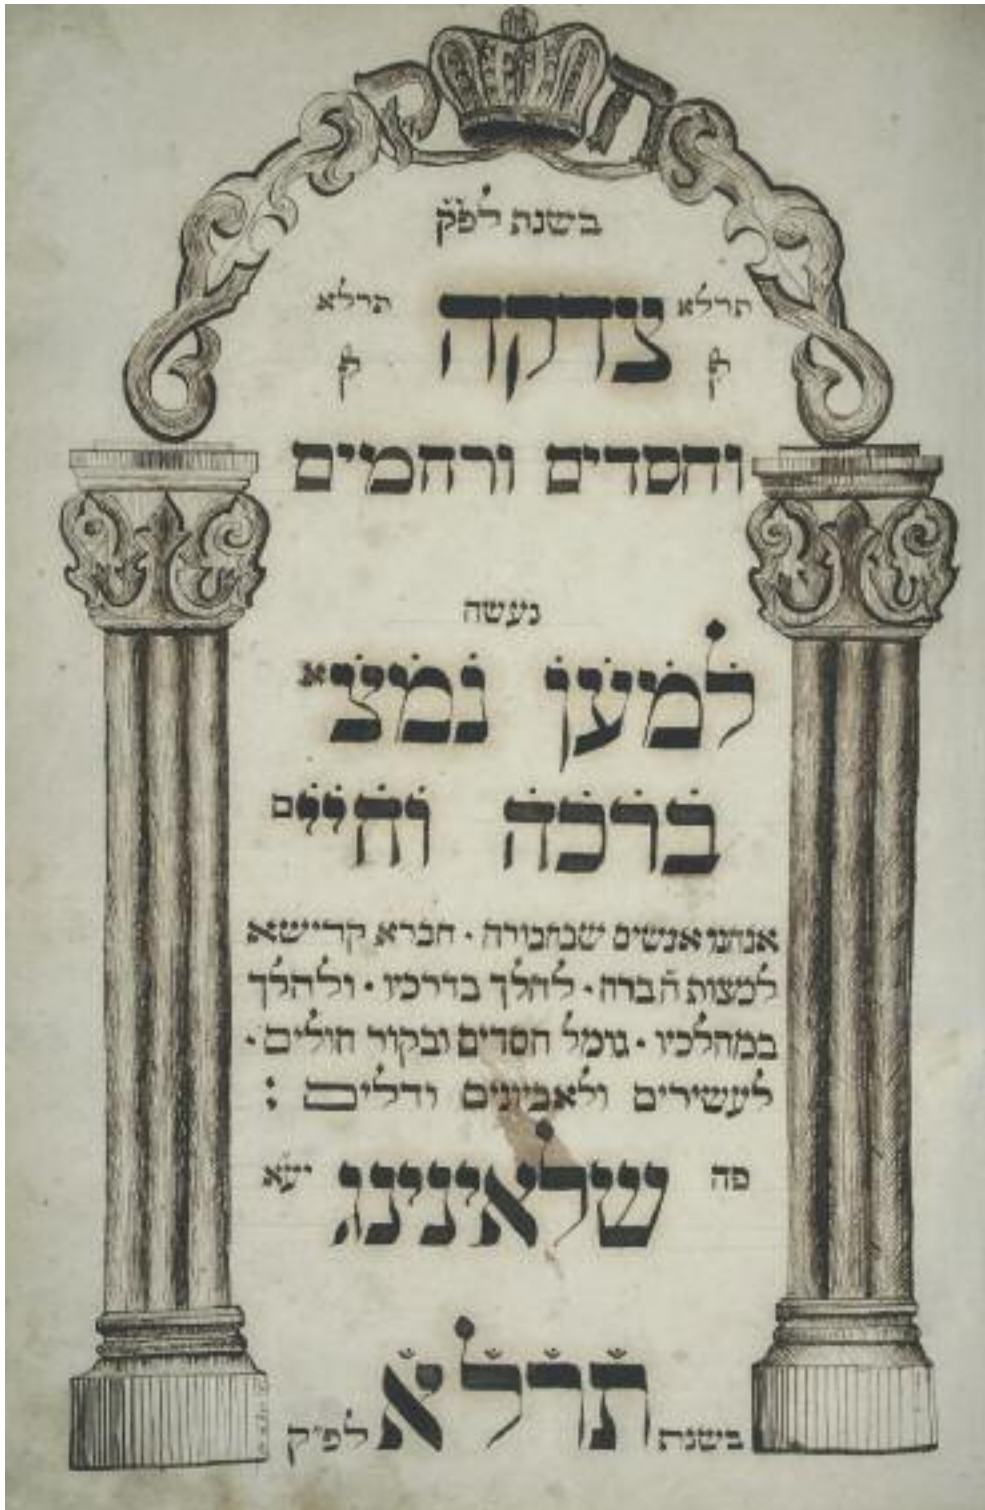 בשנת לפק
תרלא צדקה תרלא
וחסדים ורחמים
נעשה
למען נמצא
ברכה וחיים
אנחנו אנשים שבחבורה · חברא קדישא
למצות חברה · להלך בדרכיו · ולהלך
במהלכיו · גומל חסדים ובקור חולים ·
לעשירים ולאביונים ודלים :
פה שלאינינג יע״א
בשנת תרלא לפ״ק